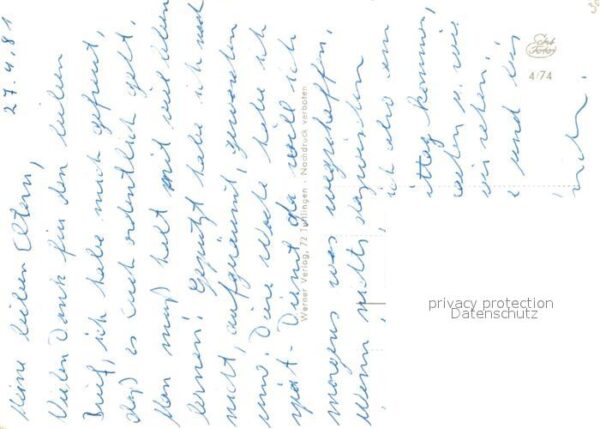 27.4.81
Meine lieben Eltern,
Vielen Dank für den lieben
Brief, ich habe mich gefreut,
daß es Euch ordentlich geht.
Man muß halt mit viel leben
lernen! Geputzt habe ich noch
nicht, aufgeräumt, geworden
um. Diese Woche habe ich
spät-Dienst da will ich
morgens was wegschaffen.
Wenn nichts dazwischen
ich also am
ittag kommen,
wir sehen.
und bis
Werner Verlag, 72 Tuttlingen · Nachdruck verboten
4/74
privacy protection
Datenschutz